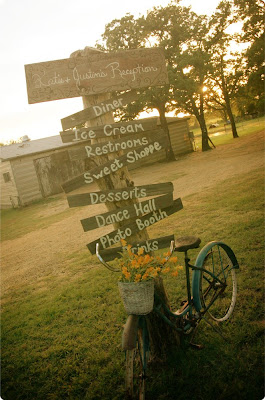 Katie & Justin's Reception
Dinner
Ice Cream
Restrooms
Sweet Shoppe
Desserts
Dance Hall
Photo Booth
Drinks